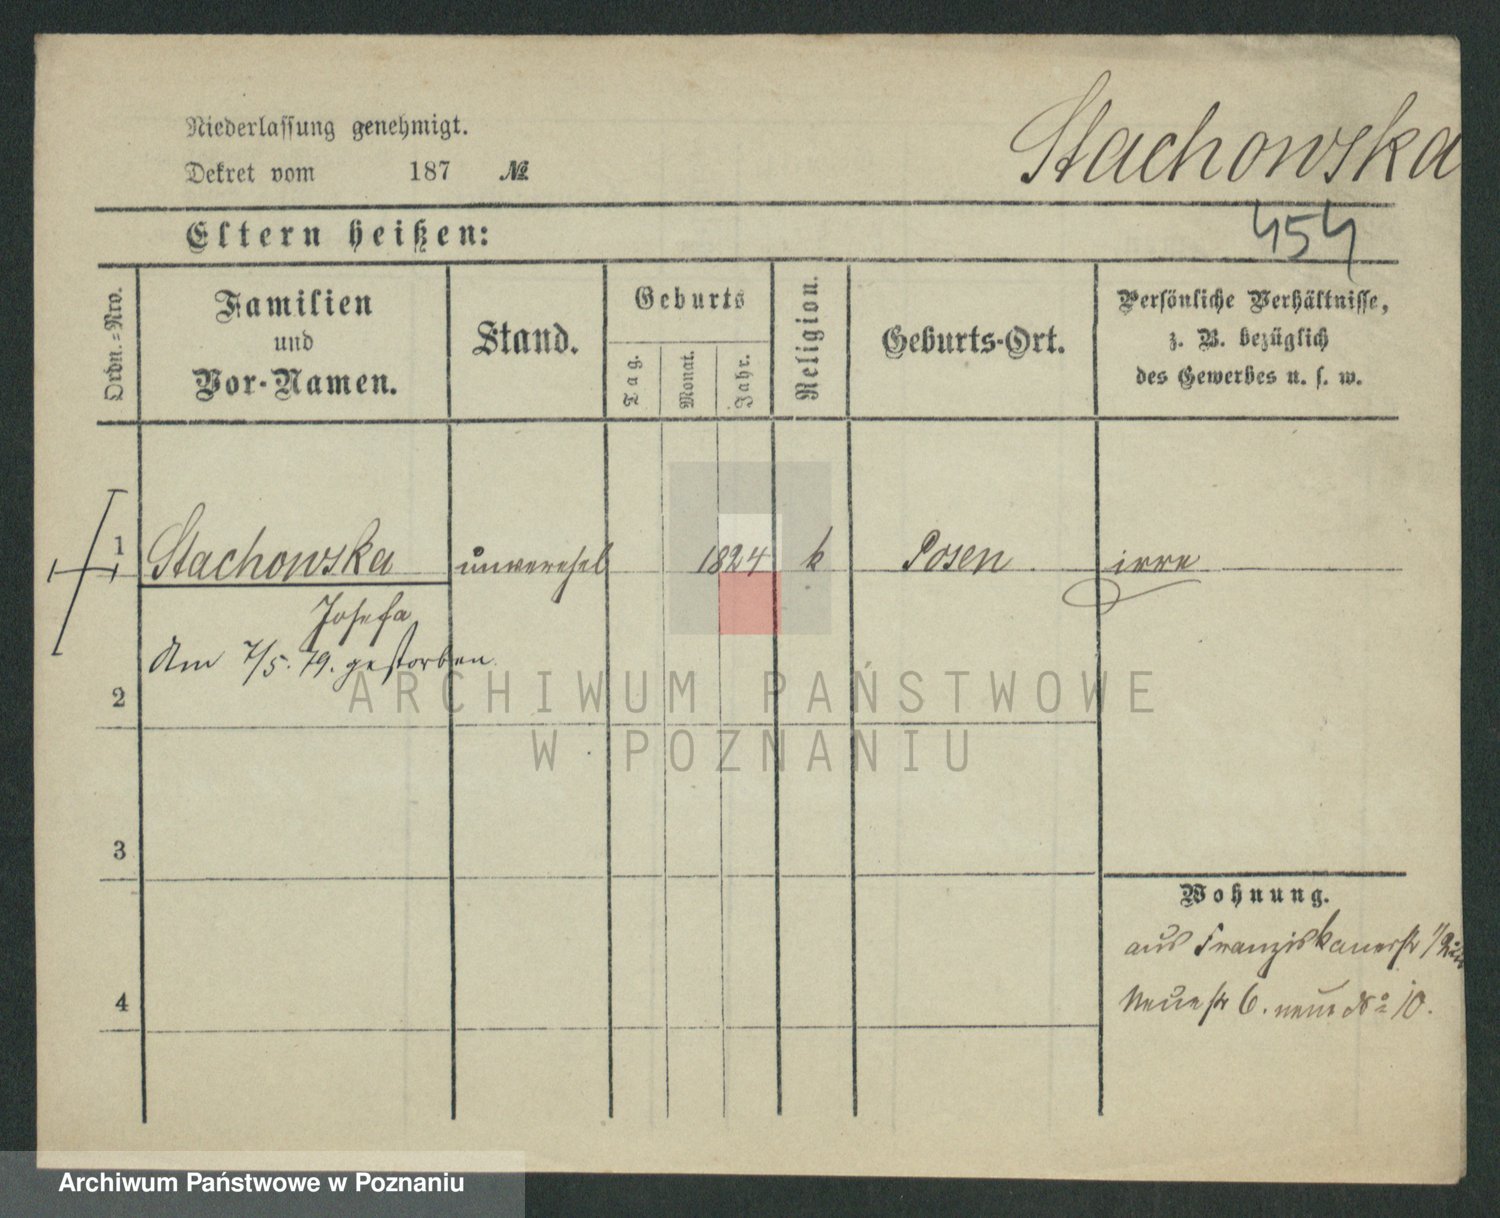 Niederlassung genehmigt.
Dekret vom 187 №
Stachowska
454
Eltern heißen:
Ordn.-Nro.
Familien
und
Vor-Namen.
Stand.
Geburts
Tag.
Monat.
Jahr.
Religion.
Geburts-Ort.
Persönliche Verhältnisse,
z. B. bezüglich
des Gewerbes u. s. w.
1 Stachowska unverehel 1824 k Posen irre
Josefa
Am 7/5. 79. gestorben.
2
ARCHIWUM PAŃSTWOWE
W POZNANIU
3
Wohnung.
aus Franziskanerstr
4
Neuestr 6. neue No 10.
Archiwum Państwowe w Poznaniu